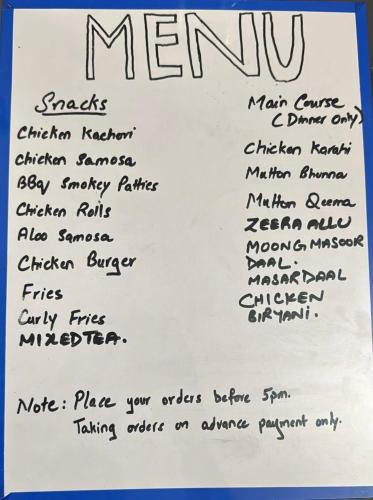 MENU
Snacks
Chicken Kachori
Chicken Samosa
BBQ Smokey Patties
Chicken Rolls
Aloo Samosa
Chicken Burger
Fries
Curly Fries
MIXED TEA.
Main Course
(Dinner Only)
Chicken Karahi
Mutton Bhunna
Mutton Qeema
ZEERA ALLU
MOONG MASOOR
DAAL.
MASAR DAAL
CHICKEN
BIRYANI.
Note: Place your orders before 5pm.
Taking orders on advance payment only.